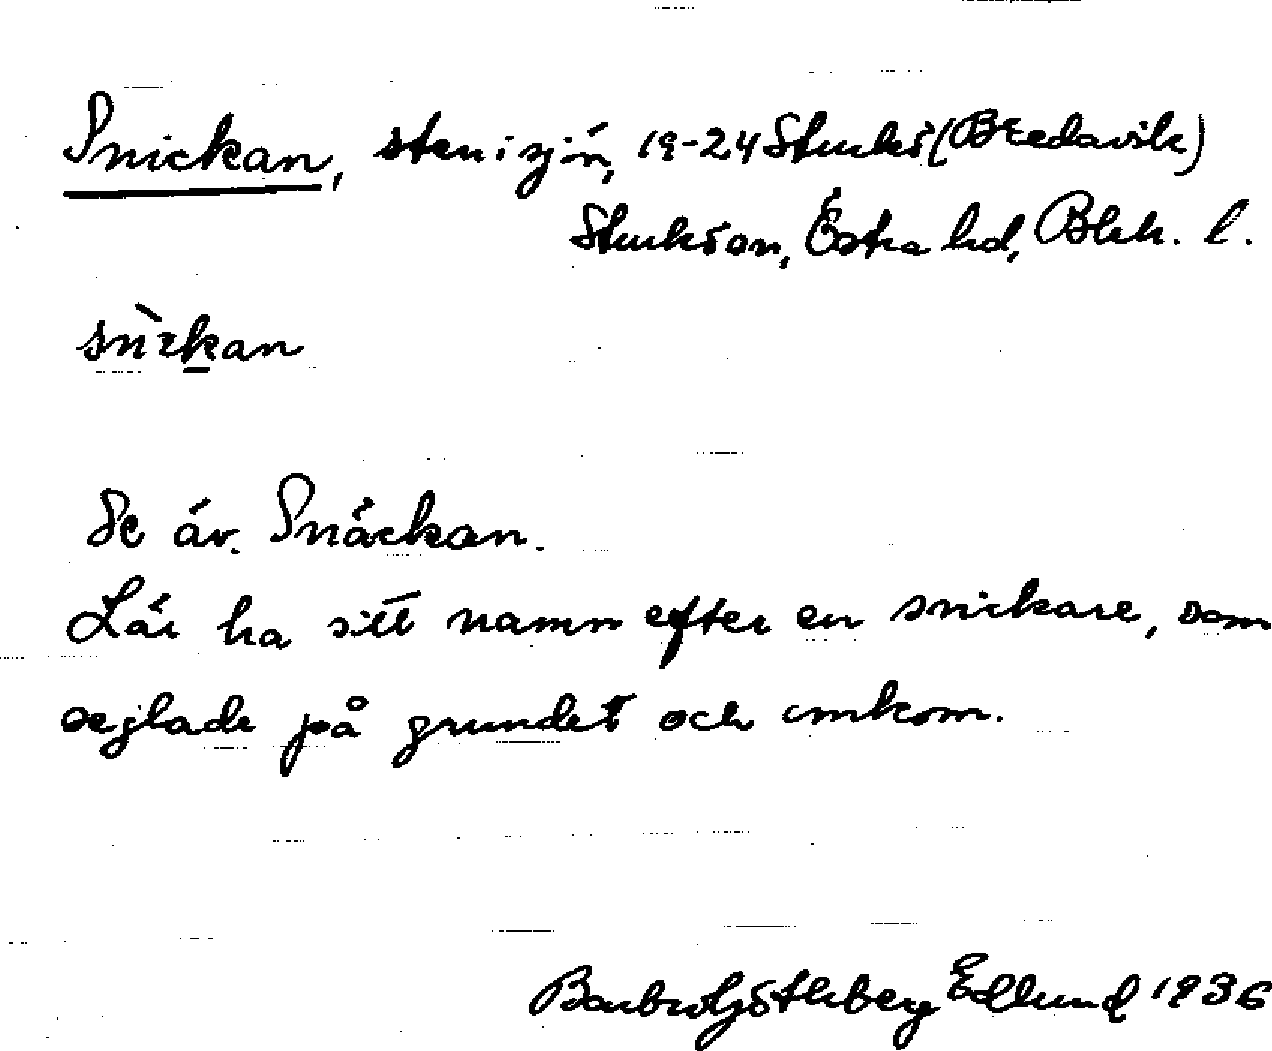 Snickan, sten i sjön, 19-24 Sturkö (Bredavik)
Sturkö sn, Östra hd, Blek. l.
snìkan
Se äv. Snäckan.
Lär ha sitt namn efter en snickare, som
seglade på grundet och omkom.
Barbro Götherberg Edlund 1936